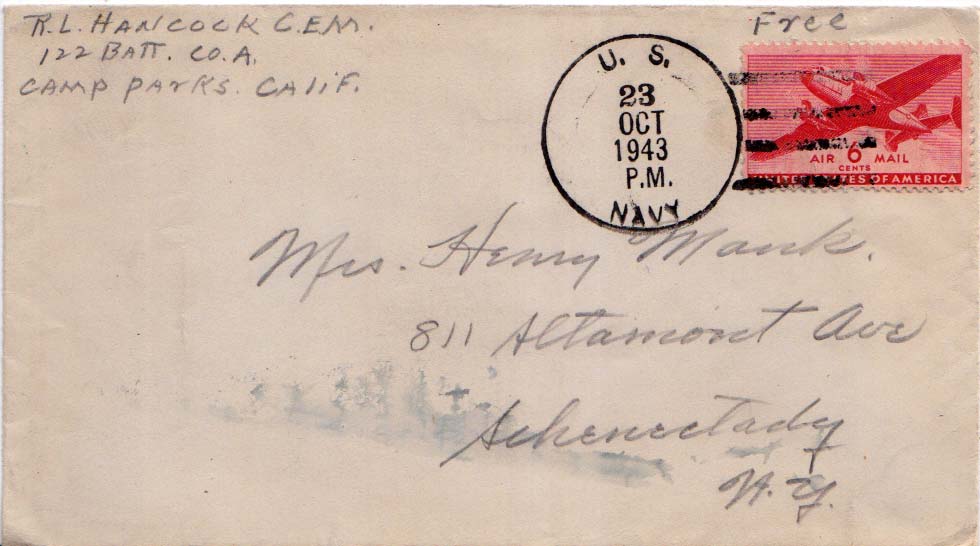 R.L. HANCOCK C.E.M.
122 BATT. CO. A.
CAMP PARKS. CALIF.
Free
U. S.
23
OCT
1943
P.M.
NAVY
AIR 6 MAIL
CENTS
UNITED STATES OF AMERICA
Mrs. Henry Mank.
811 Altamont Ave
Schenectady
N.Y.